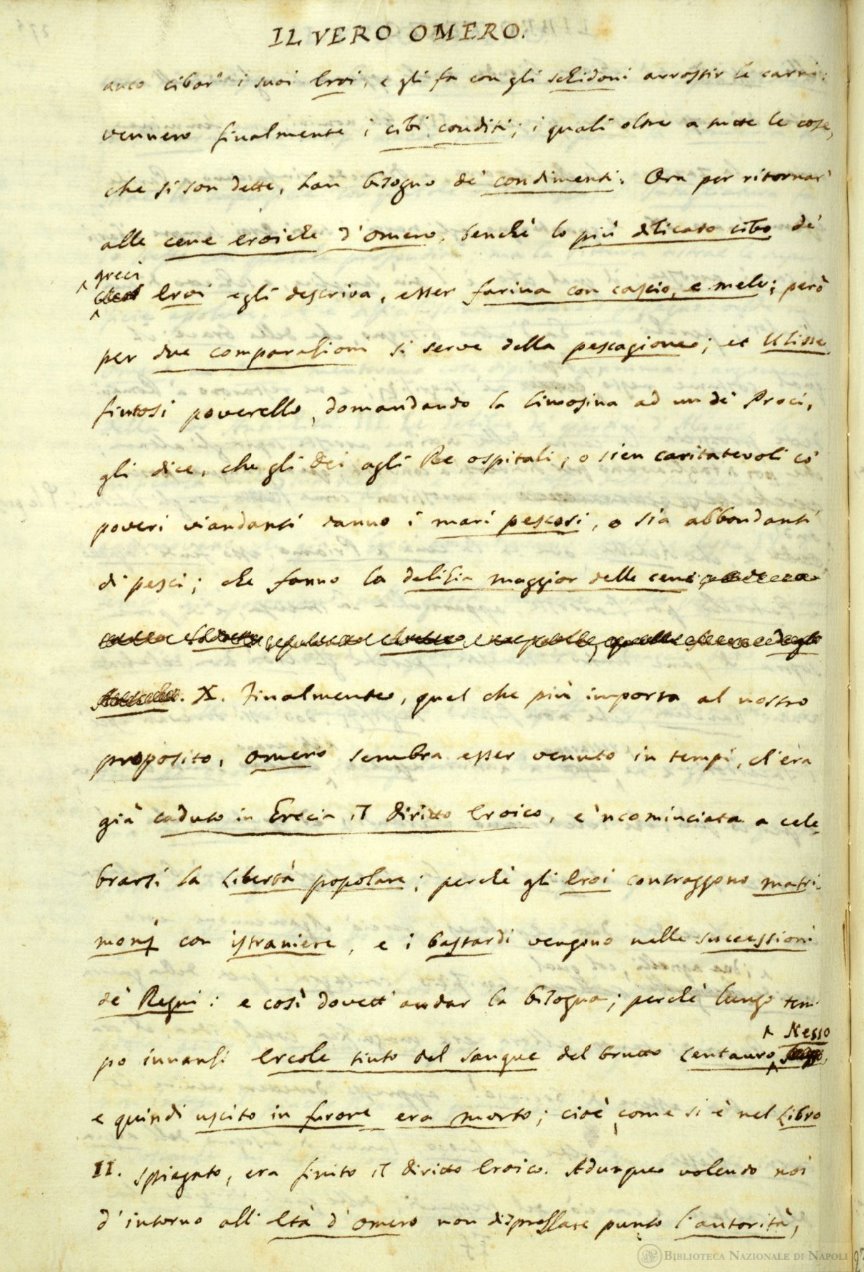 IL VERO OMERO.
anco cibar' i suoi Eroi, e gli fa con gli schidoni arrostir le carni:
vennero finalmente i cibi conditi; i quali oltre a tutte le cose,
che si son dette, han bisogno de' condimenti. Ora per ritornar'
alle cene eroiche d'Omero, benchè lo più dilicato cibo de'
greci
Eroi egli descriva, esser farina con cascio, e mele; però
per due comparazioni si serve della pescagione; et Ulisse
fintosi poverello, domandando la limosina ad un de' Proci,
gli dice, che gli Dei agli Re ospitali, o sien caritatevoli co'
poveri viandanti danno i mari pescosi, o sia abbondanti
di pesci; che fanno la delizia maggior delle cene
X. Finalmente, quel che più importa al nostro
proposito, Omero sembra esser venuto in tempi, ch'era
già caduto in Grecia il diritto Eroico, e 'ncominciata a cele-
brarsi la Libertà popolare; perchè gli Eroi contraggono matri-
monj con istraniere, e i bastardi vengono nelle successioni
de' Regni: e così dovett' andar la bisogna; perchè lungo tem-
Nesso
po innanzi Ercole tinto del sangue del brutto Centauro
e quindi uscito in furore era morto; cioè, come si è nel Libro
II. spiegato, era finito il diritto Eroico. Adunque volendo noi
d'intorno all' Età d'Omero non disprezzare punto l'autorità,
BIBLIOTECA NAZIONALE DI NAPOLI